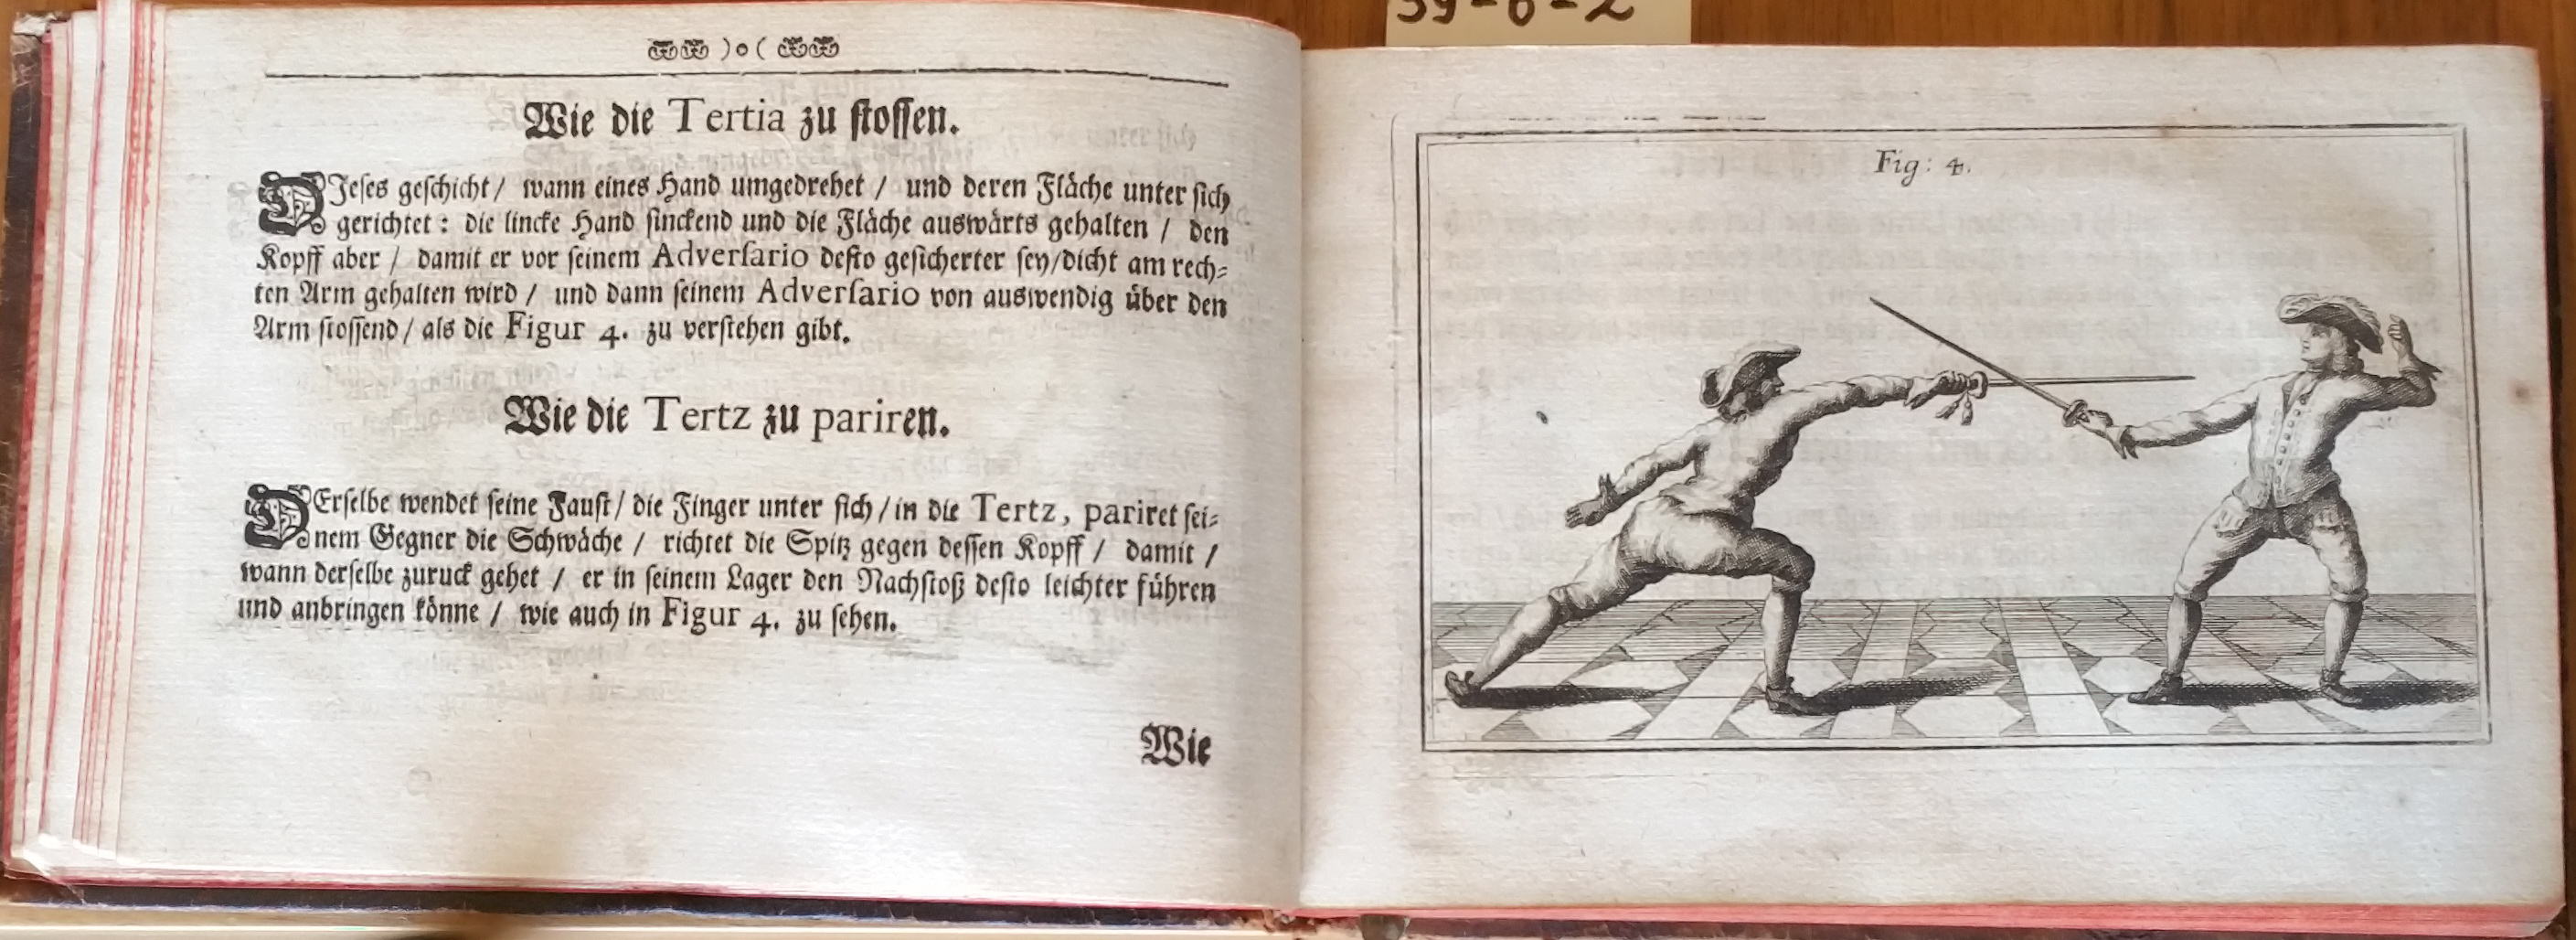 39-6-2
)o(
Wie die Tertia zu ſtoſſen.
DJeſes geſchicht / wann eines Hand umgedrehet / und deren Fläche unter ſich
gerichtet : die lincke Hand ſinckend und die Fläche auswärts gehalten / den
Kopff aber / damit er vor ſeinem Adverſario deſto geſicherter ſey/dicht am rech⸗
ten Arm gehalten wird / und dann ſeinem Adverſario von auswendig über den
Arm ſtoſſend / als die Figur 4. zu verſtehen gibt.
Wie die Tertz zu pariren.
DErſelbe wendet ſeine Fauſt / die Finger unter ſich / in die Tertz, pariret ſei⸗
nem Gegner die Schwäche / richtet die Spitz gegen deſſen Kopff / damit /
wann derſelbe zuruck gehet / er in ſeinem Lager den Nachſtoß deſto leichter führen
und anbringen könne / wie auch in Figur 4. zu ſehen.
Wie
Fig: 4.